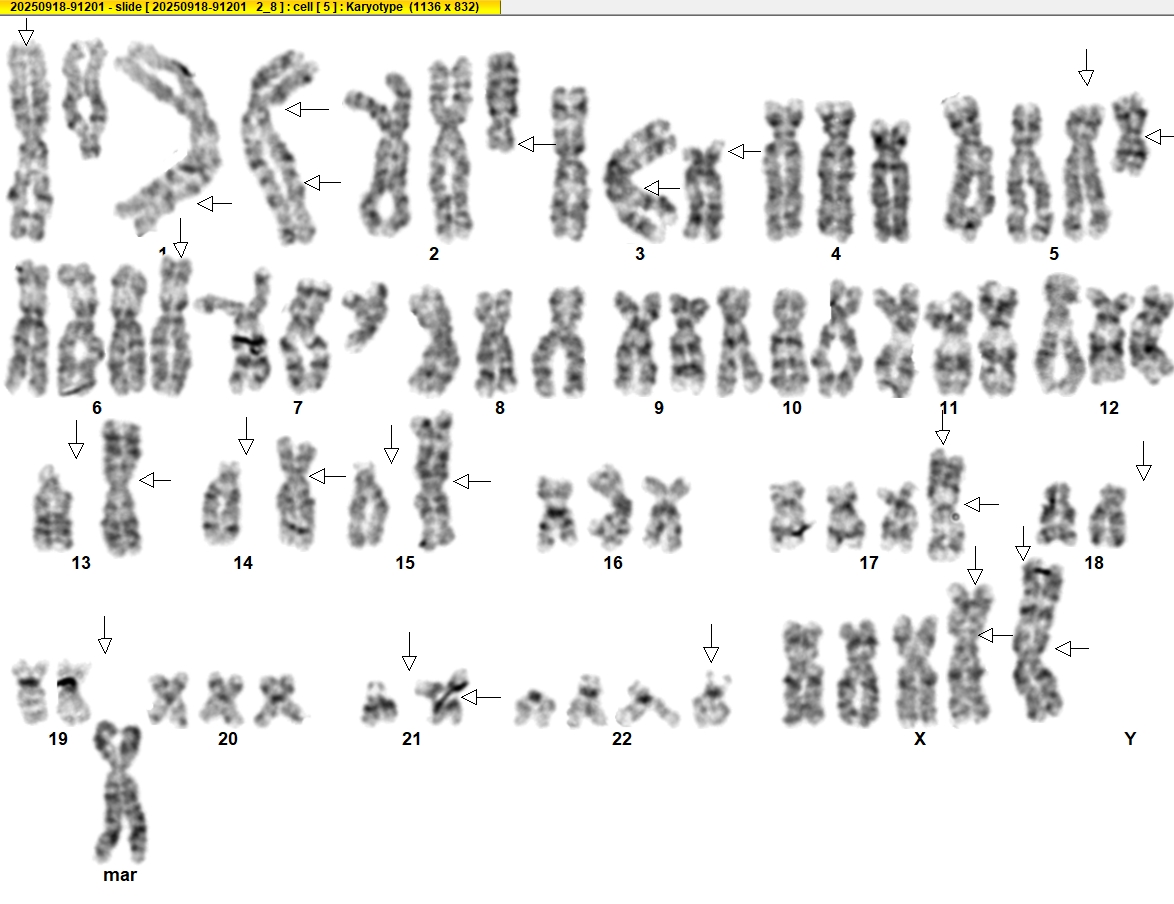 20250918-91201 - slide [ 20250918-91201 2_8 ] : cell [ 5 ] : Karyotype (1136 x 832)
1 2 3 4 5
6 7 8 9 10 11 12
13 14 15 16 17 18
19 20 21 22 X Y
mar